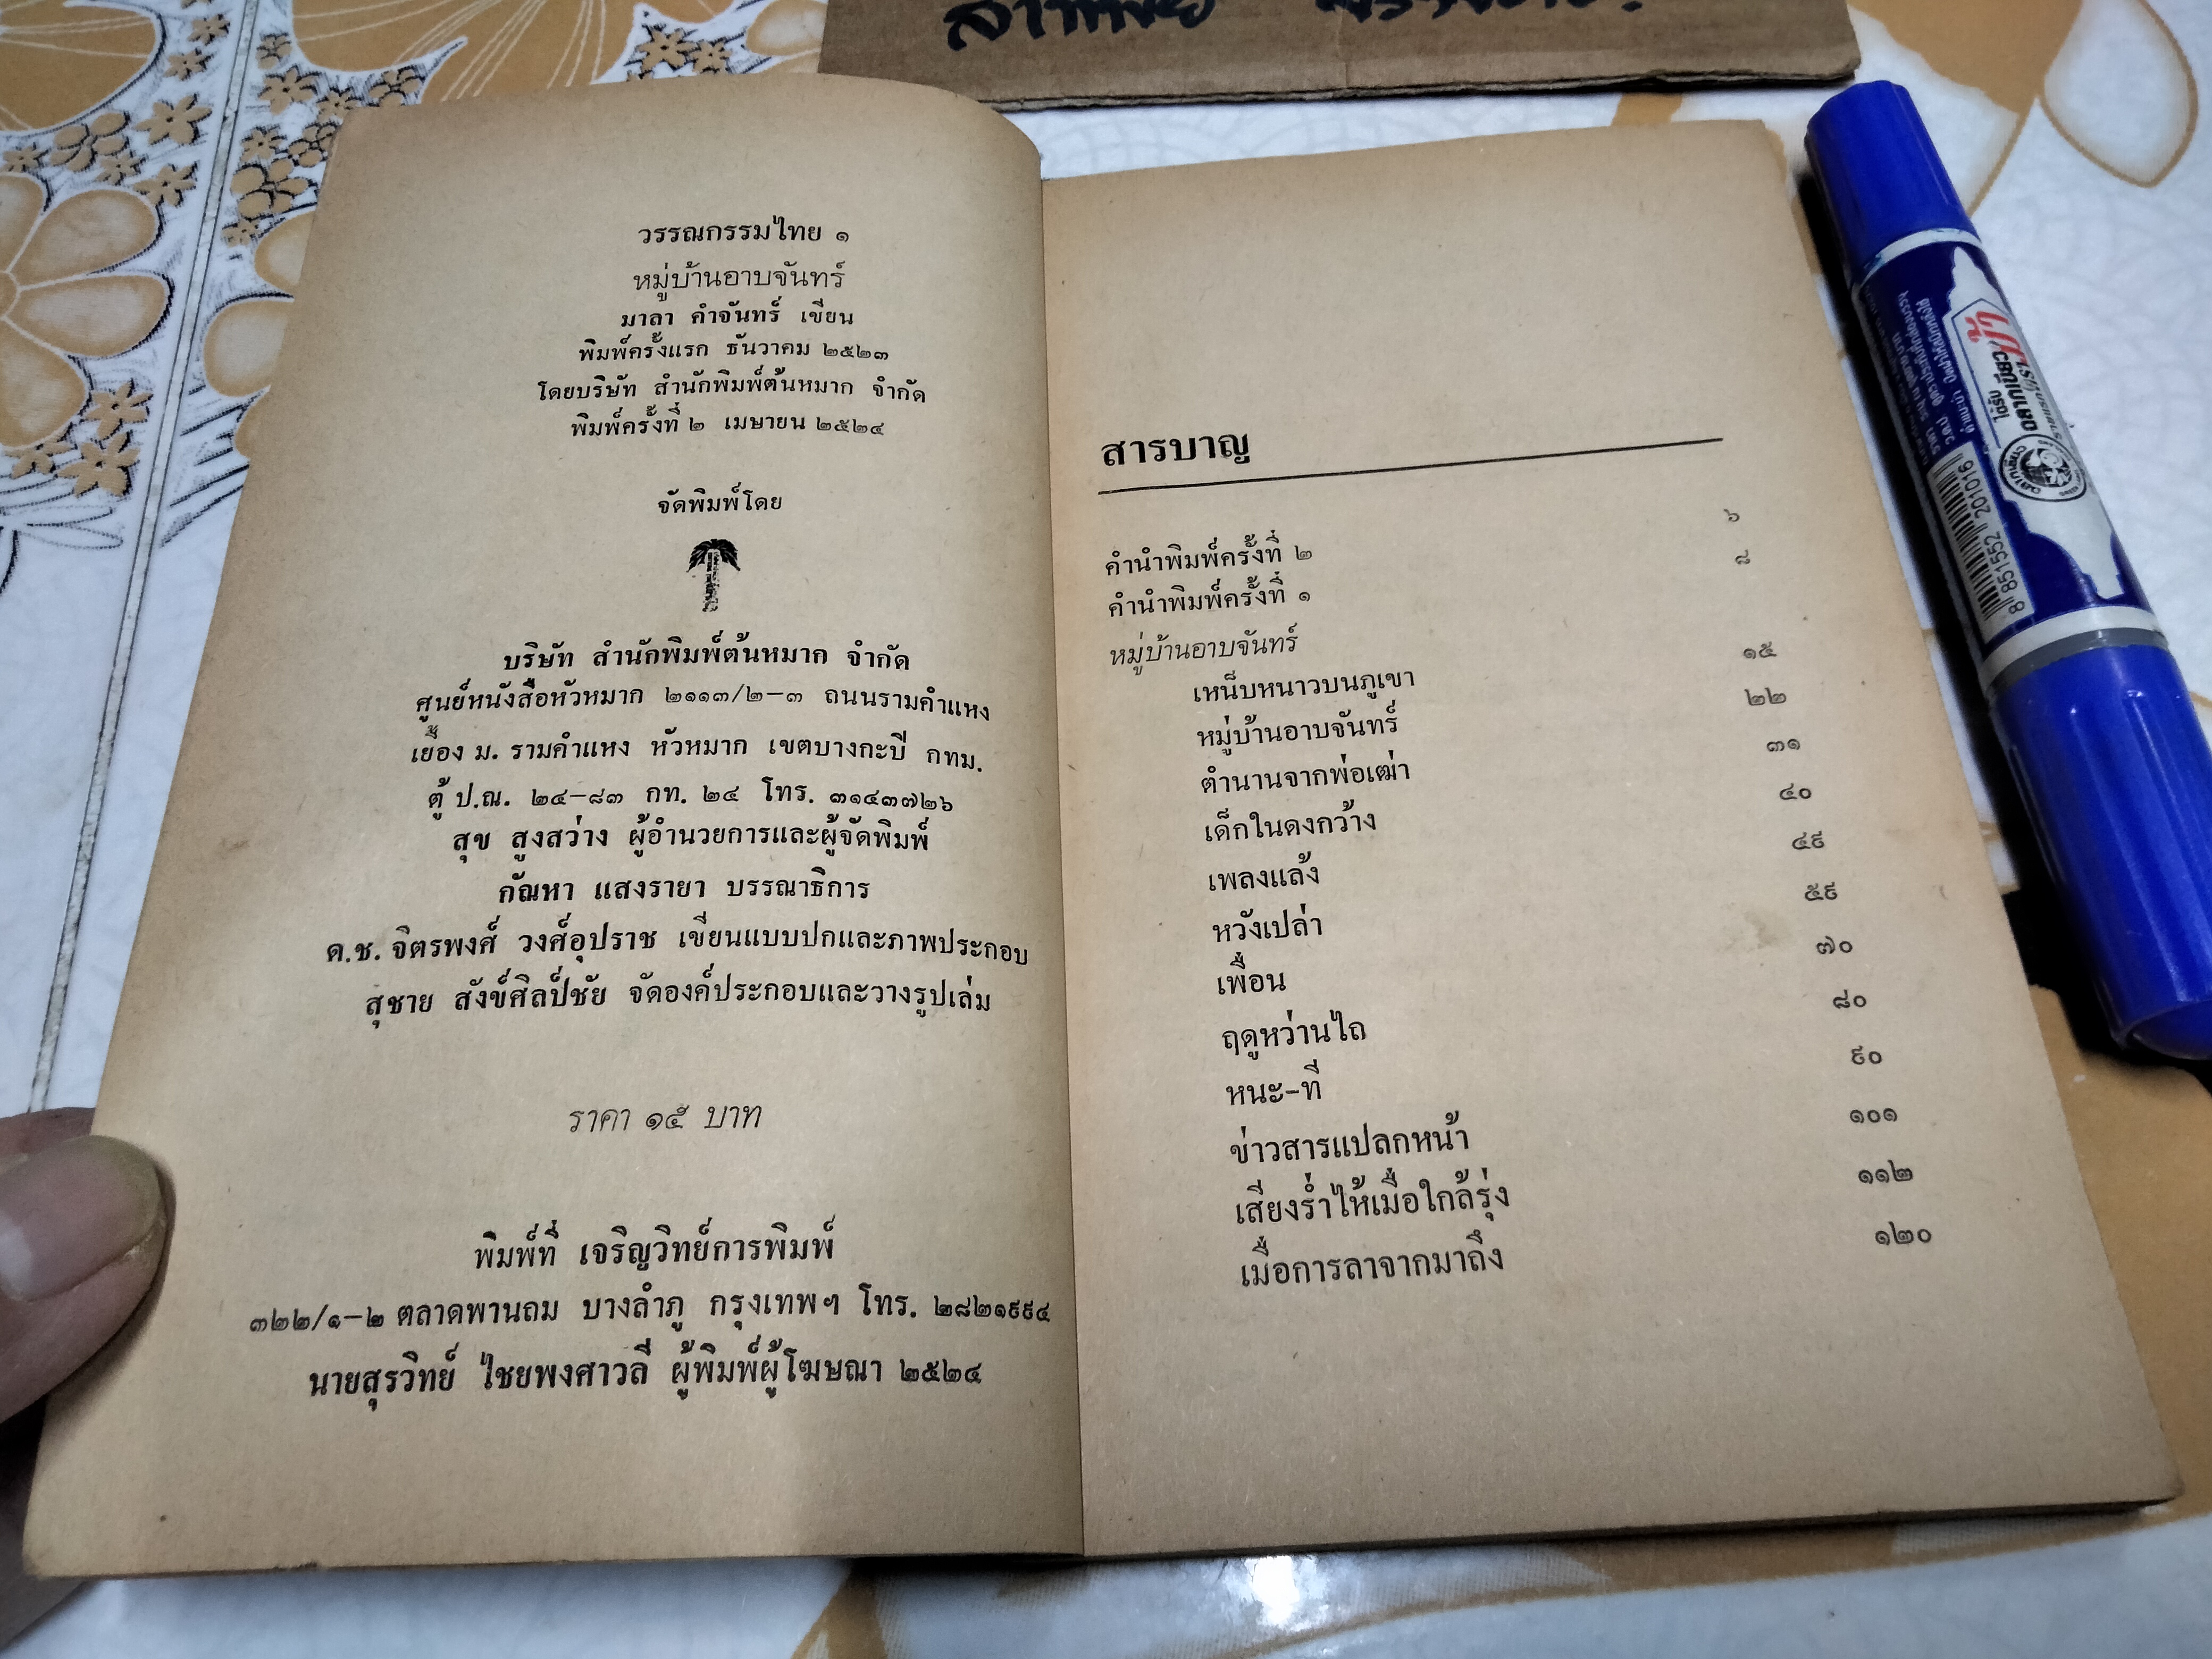 วรรณกรรมไทย ๑
หมู่บ้านอาบจันทร์
มาลา คำจันทร์ เขียน
พิมพ์ครั้งแรก ธันวาคม ๒๕๒๓
โดยบริษัท สำนักพิมพ์ต้นหมาก จำกัด
พิมพ์ครั้งที่ ๒ เมษายน ๒๕๒๔
จัดพิมพ์โดย
บริษัท สำนักพิมพ์ต้นหมาก จำกัด
ศูนย์หนังสือหัวหมาก ๒๑๑๓/๒-๓ ถนนรามคำแหง
เยื้อง ม. รามคำแหง หัวหมาก เขตบางกะปี กทม.
ตู้ ป.ณ. ๒๔-๘๓ กท. ๒๔ โทร. ๓๑๔๓๗๒๖
สุข สูงสว่าง ผู้อำนวยการและผู้จัดพิมพ์
กัณหา แสงรายา บรรณาธิการ
ด.ช. จิตรพงศ์ วงศ์อุปราช เขียนแบบปกและภาพประกอบ
สุชาย สังข์ศิลป์ชัย จัดองค์ประกอบและวางรูปเล่ม
ราคา ๑๕ บาท
พิมพ์ที่ เจริญวิทย์การพิมพ์
๓๒๒/๑-๒ ตลาดพานถม บางลำภู กรุงเทพฯ โทร. ๒๘๒๑๙๙๔
นายสุรวิทย์ ไชยพงศาวลี ผู้พิมพ์ผู้โฆษณา ๒๕๒๔
สารบาญ
คำนำพิมพ์ครั้งที่ ๒ ๖
คำนำพิมพ์ครั้งที่ ๑ ๘
หมู่บ้านอาบจันทร์
เหน็บหนาวบนภูเขา ๑๕
หมู่บ้านอาบจันทร์ ๒๒
ตำนานจากพ่อเฒ่า ๓๑
เด็กในดงกว้าง ๔๐
เพลงแล้ง ๔๙
หวังเปล่า ๕๙
เพื่อน ๗๐
ฤดูหว่านไถ ๘๐
หนะ-ที ๙๐
ข่าวสารแปลกหน้า ๑๐๑
เสียงร่ำไห้เมื่อใกล้รุ่ง ๑๑๒
เมื่อการลาจากมาถึง ๑๒๐
ตราม้า
ได้รับ
ฉลากเขียว
8 851552 201016